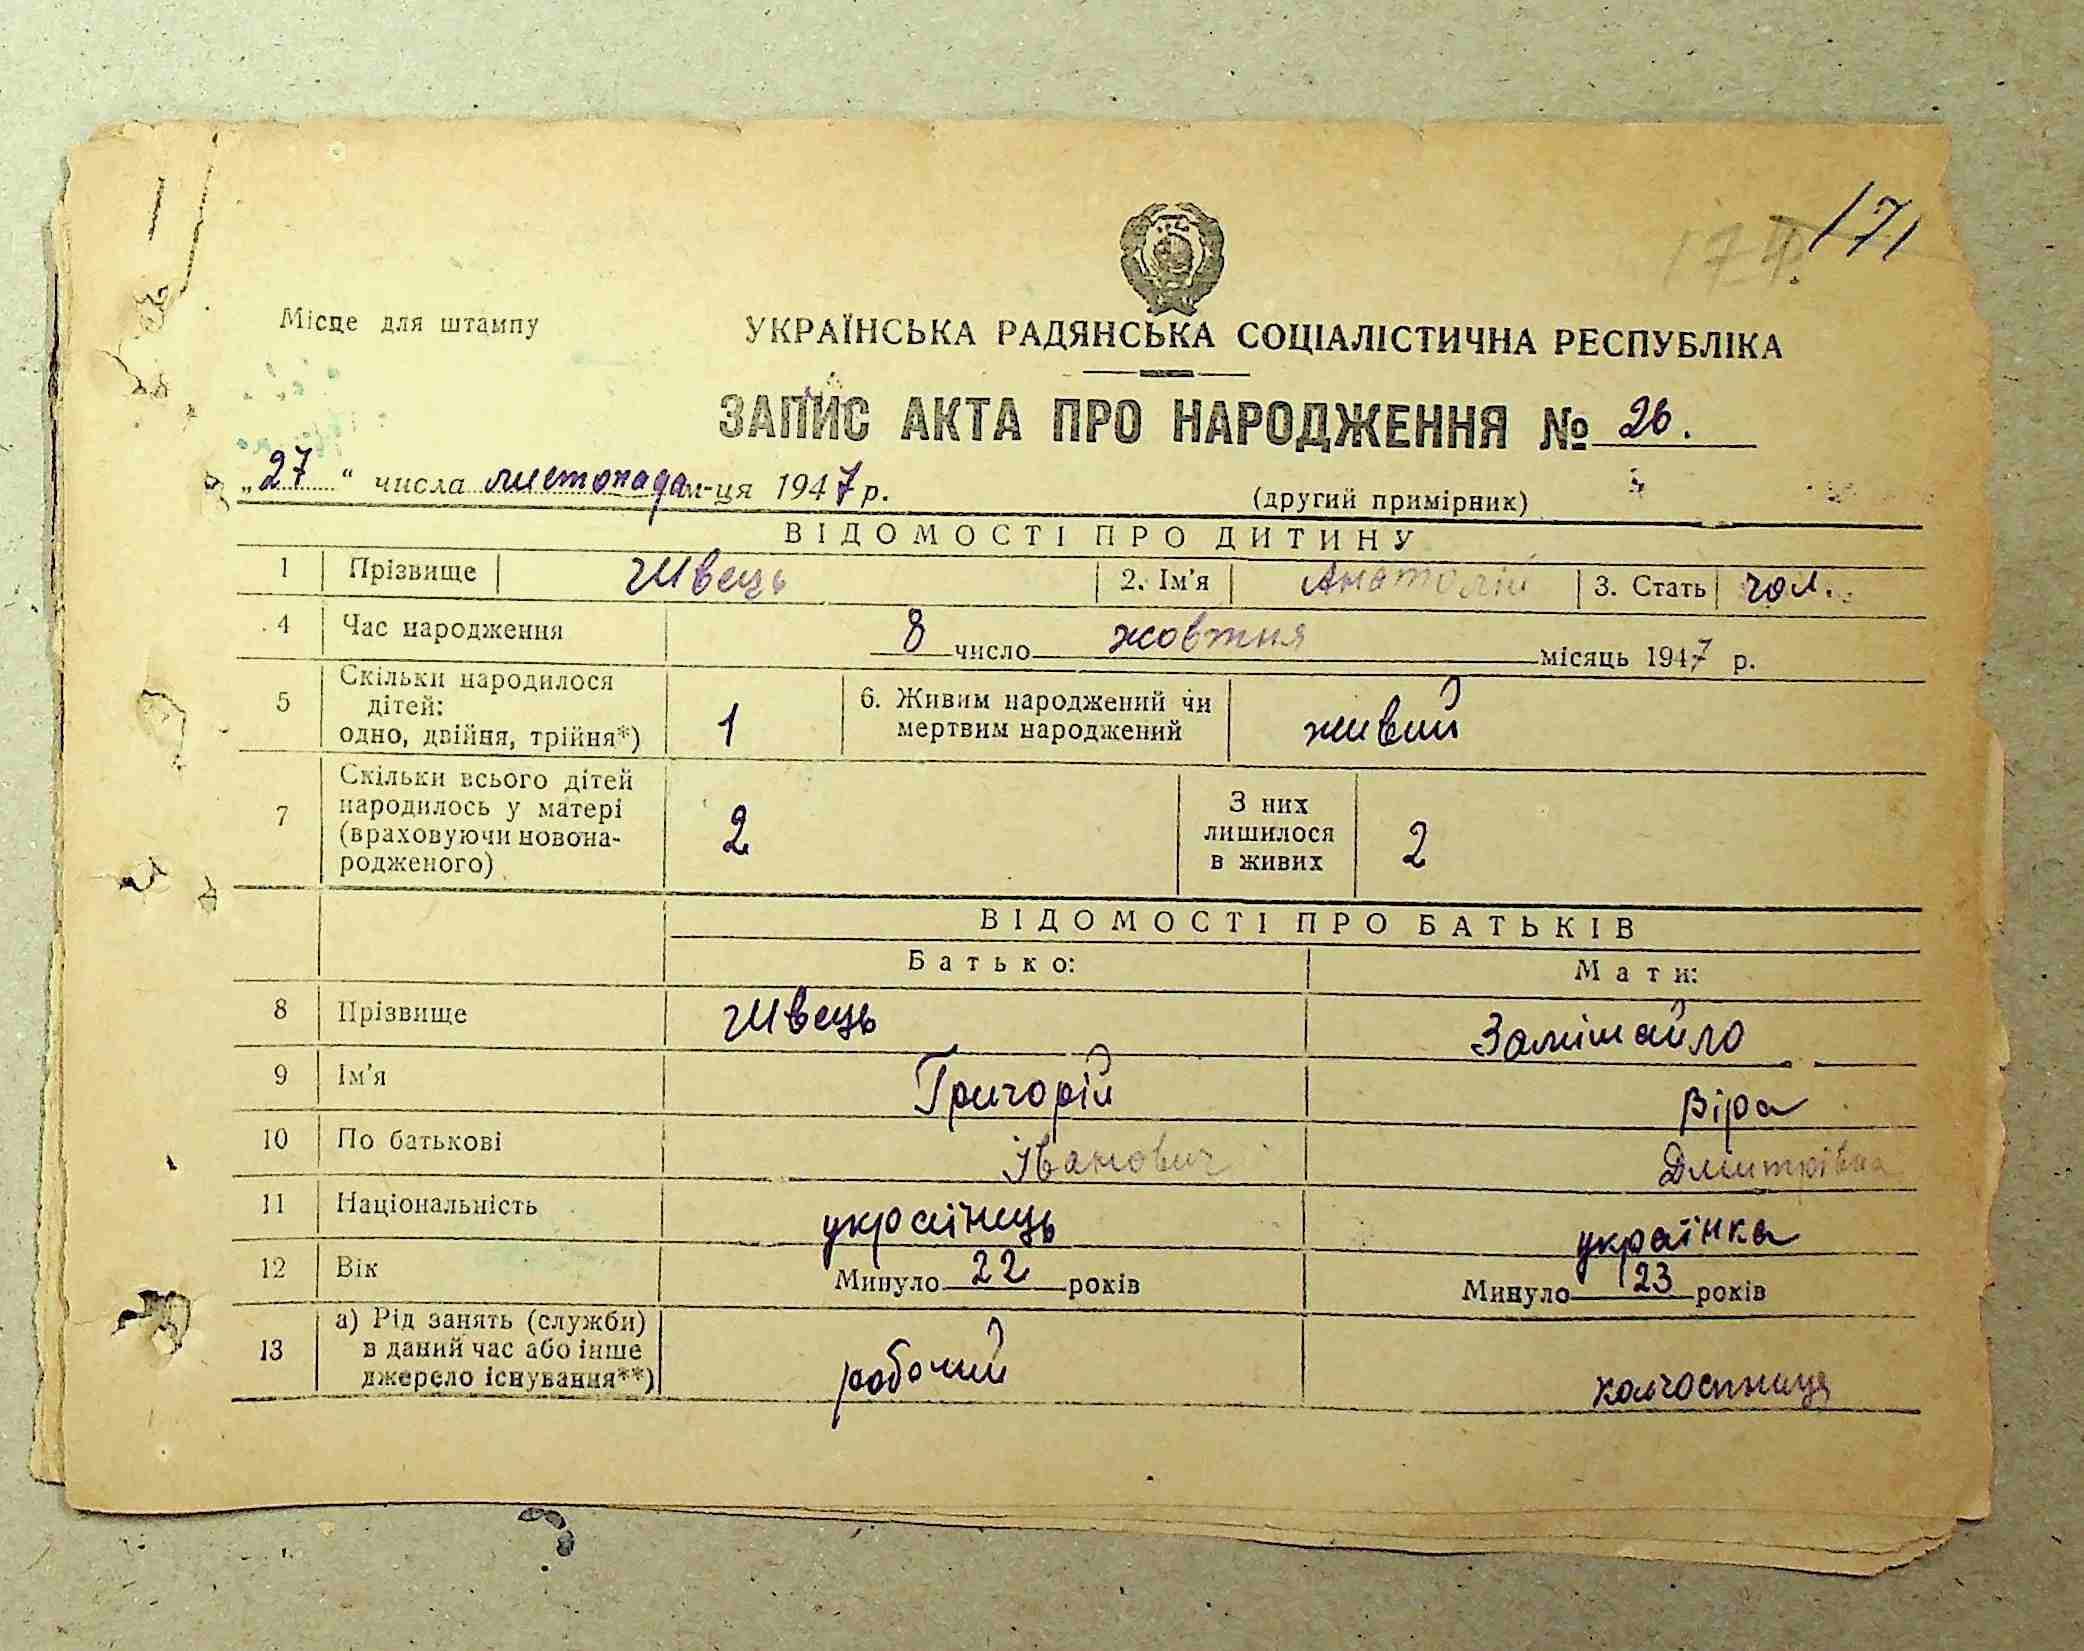 171
Місце для штампу
УКРАЇНСЬКА РАДЯНСЬКА СОЦІАЛІСТИЧНА РЕСПУБЛІКА
ЗАПИС АКТА ПРО НАРОДЖЕННЯ № 26.
„27“ числа листопада м-ця 1947 р.
(другий примірник)
ВІДОМОСТІ ПРО ДИТИНУ
1 Прізвище Швець 2. Ім'я Анатолій 3. Стать чол.
4 Час народження 8 число жовтня місяць 1947 р.
5 Скільки народилося дітей: одно, двійня, трійня*) 1 6. Живим народжений чи мертвим народжений живий
7 Скільки всього дітей народилось у матері (враховуючи новонародженого) 2 З них лишилося в живих 2
ВІДОМОСТІ ПРО БАТЬКІВ
Батько: Мати:
8 Прізвище Швець Замішайло
9 Ім'я Григорій Віра
10 По батькові Іванович Дмитрівна
11 Національність українець українка
12 Вік Минуло 22 років Минуло 23 років
13 а) Рід занять (служби) в даний час або інше джерело існування**) робочий колгоспниця